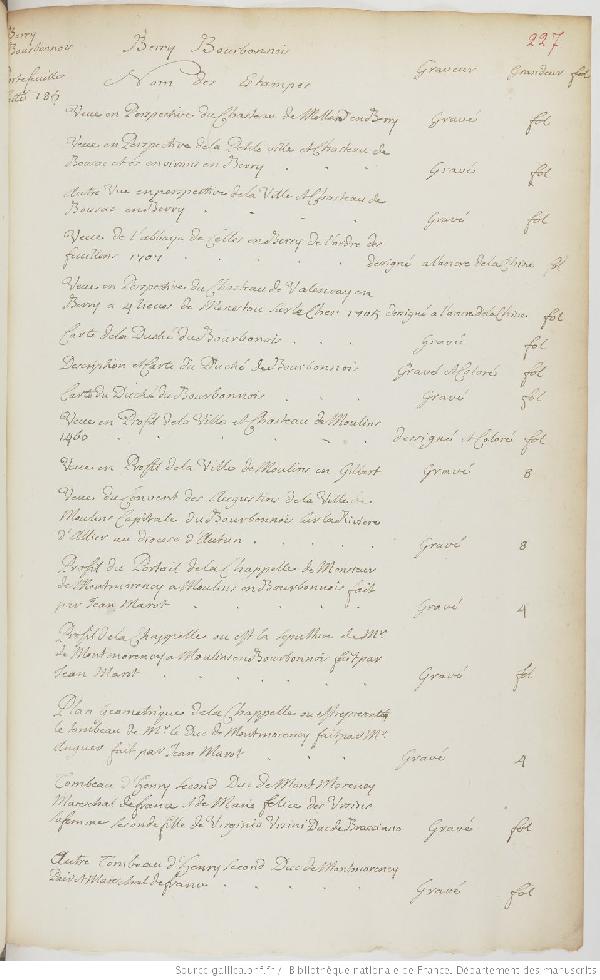 Berry
Bourbonnois
Berry Bourbonnois
227
Portefeuilles
Nom des Estampes Graveur Grandeur fol
Veue en Perspective du Chasteau de en Berry Gravé fol
Veue en Perspective de la Petite ville et Chasteau de
Bousac et és environs en Berry Gravés fol
Autre Vue en perspective de la Ville et Chasteau de
Bousac en Berry Gravé fol
Veue de l'abbaye de Celles en Berry de l'ordre des
feuillens 1707 dessigné a l'ancre de la Chine fol
Veue en Perspective du Chasteau de Valencay en
Berry a 4 lieues de sur le Cher 1705 dessigné a l'ancre de la Chine fol
Carte de la Duché du Bourbonois Gravé fol
Description et Carte du Duché de Bourbonnois Gravé et Coloré fol
Carte du Duché de Bourbonnois Gravé fol
Veue en Profil de la Ville et Chasteau de Moulins
1460 dessigné et Coloré fol
Veue en Profil de la Ville de Moulins en Gilbert Gravé 8
Veue du Convent des Augustins de la Ville de
Moulins Capitale du Bourbonnois sur la Riviere
d'Allier au diocese d'Autun Gravé 8
Profil du Portail de la Chappelle de Monsieur
de Montmorency a Moulins en Bourbonnois fait
par Jean Marot Gravé 4
Profil de la Chappelle ou est la sepulture de Mr
de Montmorency a Moulins en Bourbonnois fait par
Jean Marot Gravé fol
Plan Geometrique de la Chappelle ou est representé
le tombeau de Mr le Duc de Montmorency fait par Mr
Anguer fait par Jean Marot Gravé 4
Tombeau d'Henry second Duc de Mont Morency
Mareschal de france et de Marie felice des Ursins
sa femme seconde fille de Virginio Ursini Duc de Bracciano Gravé fol
Autre Tombeau d'Henry second Duc de Montmorency
Pair et Mareschal de france Gravé fol
Source gallica.bnf.fr / Bibliothèque nationale de France. Département des manuscrits